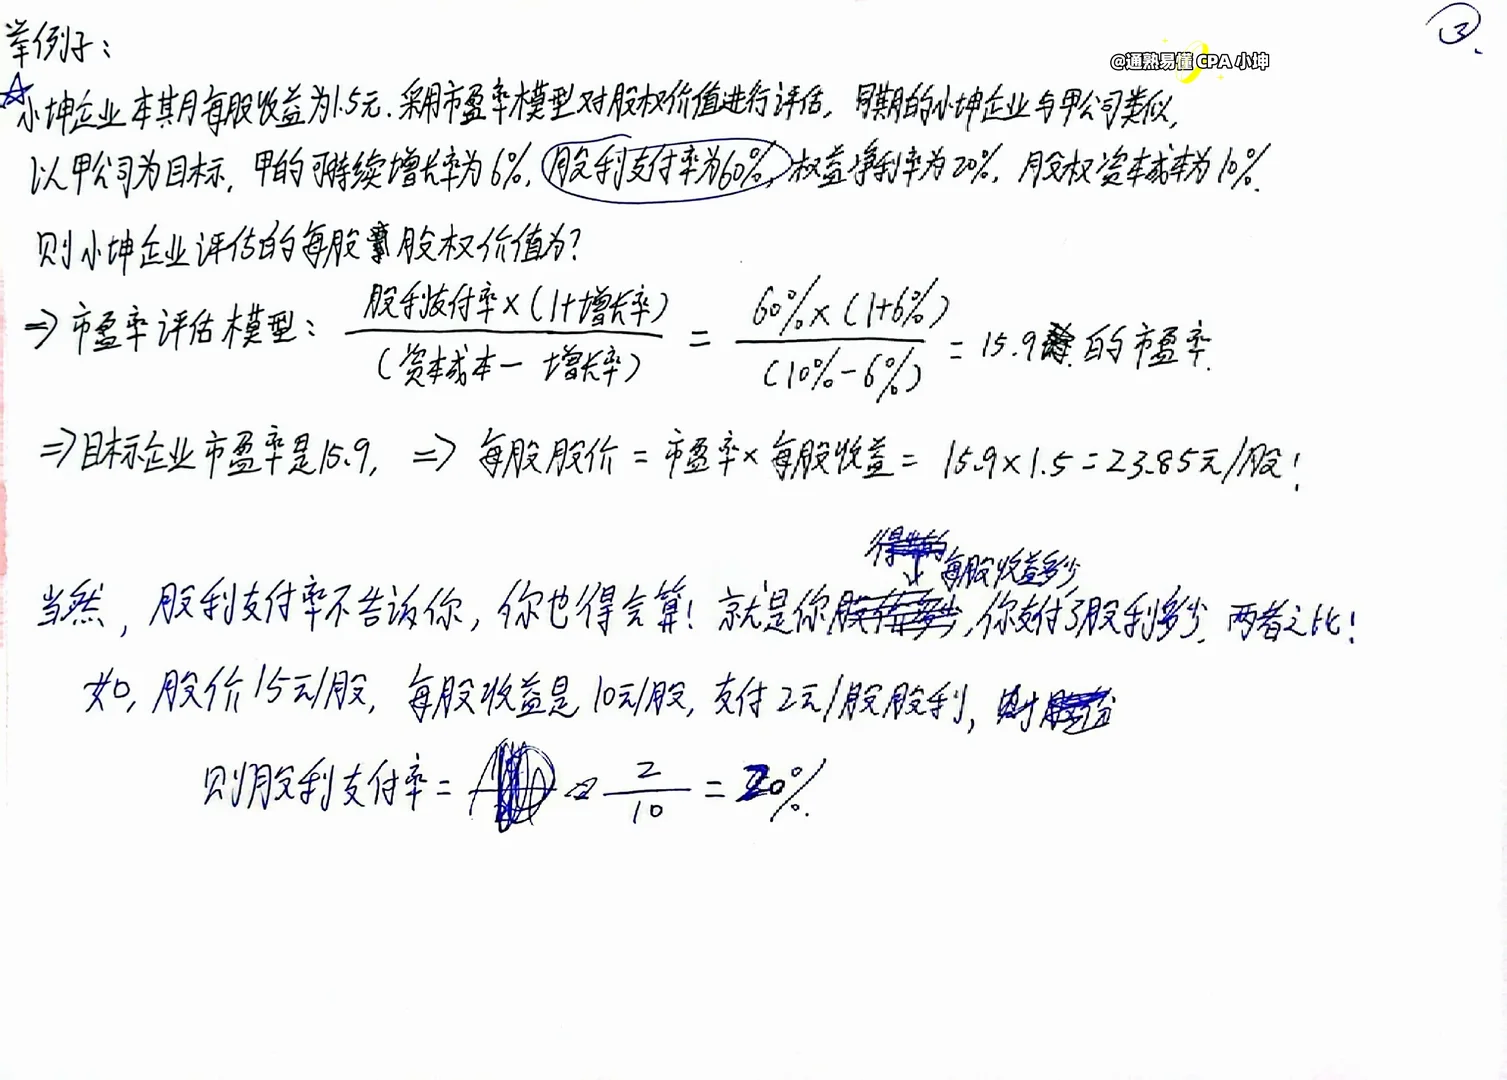 ③
举例子：
@通熟易懂 CPA 小坤
☆小坤企业本期每股收益为1.5元.采用市盈率模型对股权价值进行评估，同期的小坤企业与甲公司类似，
以甲公司为目标，甲的可持续增长率为6%，股利支付率为60%，权益净利率为20%，股权资本成本为10%.
则小坤企业评估的每股股权价值为？
⇒市盈率评估模型： 股利支付率×(1+增长率) / (资本成本－增长率) = 60%×(1+6%) / (10%-6%) = 15.9 的市盈率.
⇒目标企业市盈率是15.9，⇒ 每股股价 = 市盈率×每股收益 = 15.9×1.5=23.85元/股！
每股收益多少
当然，股利支付率不告诉你，你也得会算！就是你，你支付了股利多少.两者之比！
如，股价15元/股，每股收益是10元/股，支付2元/股股利，
则股利支付率 = = 2/10 = 20%.